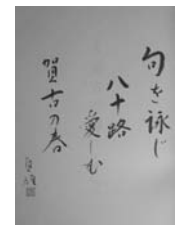 句を詠じ
八十路
愛しむ
賀古の春